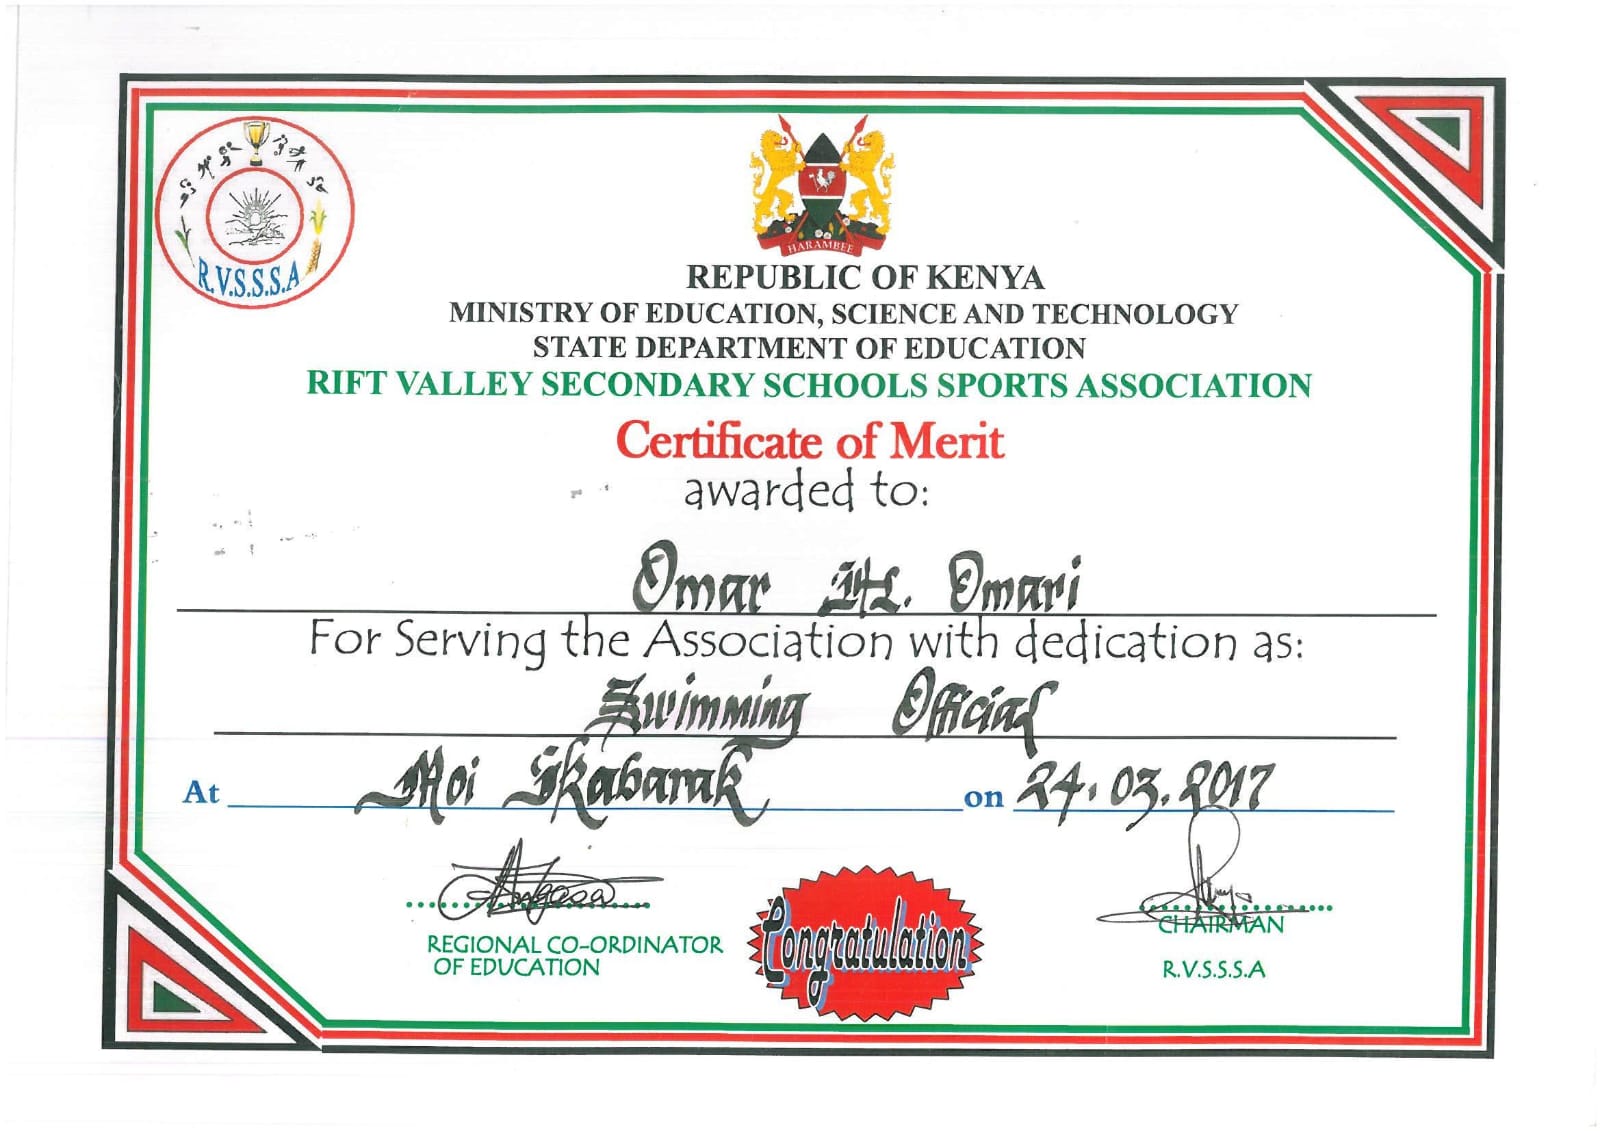 R.V.S.S.S.A
HARAMBEE
REPUBLIC OF KENYA
MINISTRY OF EDUCATION, SCIENCE AND TECHNOLOGY
STATE DEPARTMENT OF EDUCATION
RIFT VALLEY SECONDARY SCHOOLS SPORTS ASSOCIATION
Certificate of Merit
awarded to:
Omar Omari
For Serving the Association with dedication as:
Swimming Official
At Moi Kabarak on 24.03.2017
REGIONAL CO-ORDINATOR
OF EDUCATION
Congratulation
CHAIRMAN
R.V.S.S.S.A